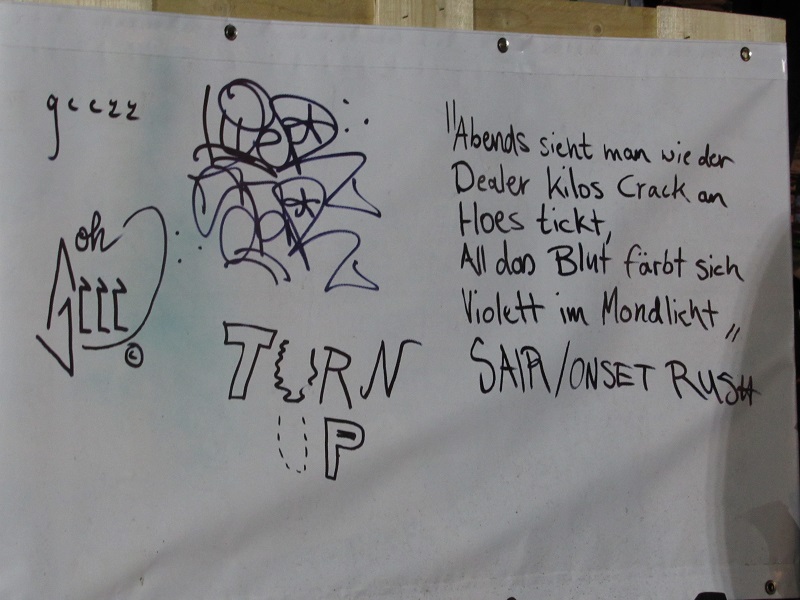 gcczz
oh
TURN
UP
"Abends sieht man wie der
Dealer Kilos Crack an
Hoes tickt,
All das Blut färbt sich
Violett im Mondlicht"
/ONSET RUSH